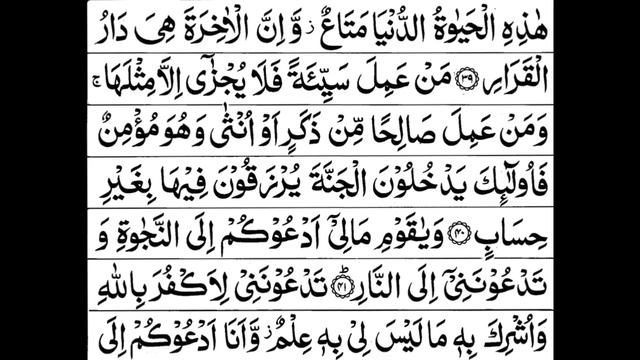 هٰذِهِ الْحَيٰوةُ الدُّنْيَا مَتَاعٌ ۫ وَّاِنَّ الْاٰخِرَةَ هِيَ دَارُ
الْقَرَارِ ﴿۳۹﴾ مَنْ عَمِلَ سَيِّئَةً فَلَا يُجْزٰٓى اِلَّا مِثْلَهَا ۚ
وَمَنْ عَمِلَ صَالِحًا مِّنْ ذَكَرٍ اَوْ اُنْثٰى وَهُوَ مُؤْمِنٌ
فَاُولٰٓئِكَ يَدْخُلُوْنَ الْجَنَّةَ يُرْزَقُوْنَ فِيْهَا بِغَيْرِ
حِسَابٍ ﴿۴۰﴾ وَيٰقَوْمِ مَالِيْٓ اَدْعُوْكُمْ اِلَى النَّجٰوةِ وَ
تَدْعُوْنَنِيْٓ اِلَى النَّارِ ﴿۴۱﴾ؕ تَدْعُوْنَنِيْ لِاَكْفُرَ بِاللّٰهِ
وَاُشْرِكَ بِهٖ مَا لَيْسَ لِيْ بِهٖ عِلْمٌ ۫ وَّاَنَا اَدْعُوْكُمْ اِلَى